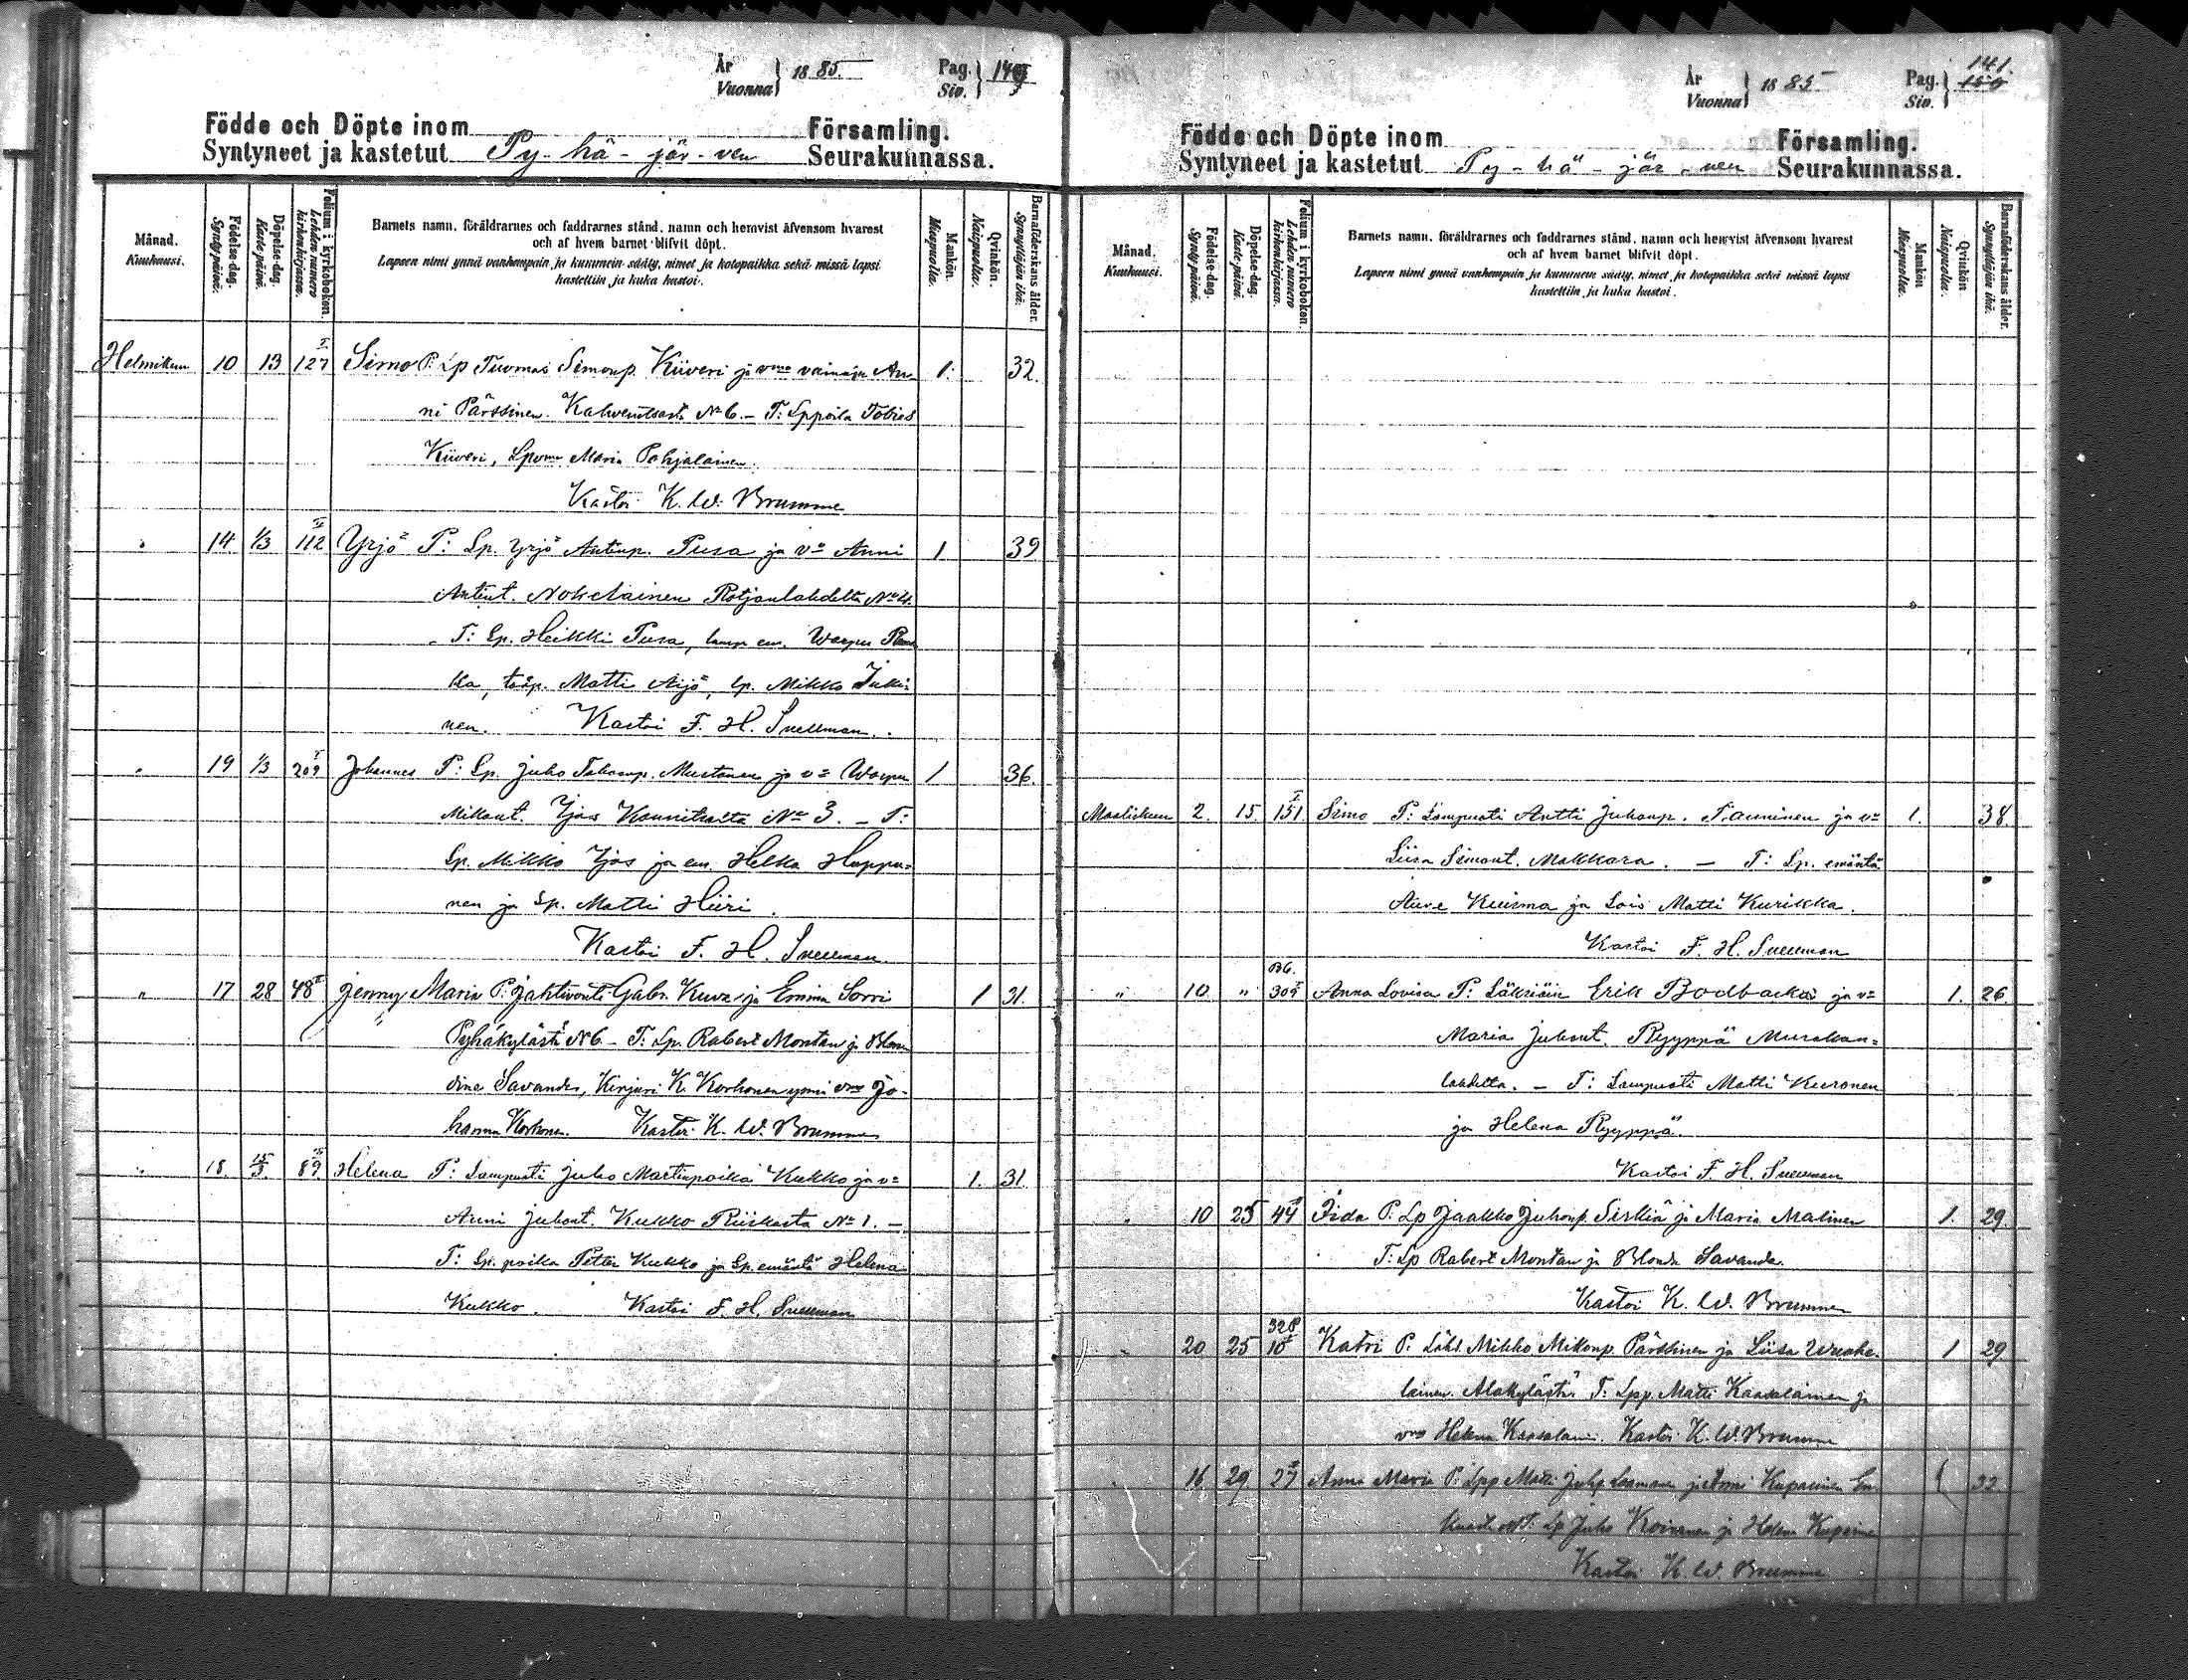 År
Vuonna } 1885.
Pag.
Siv. } 140
Födde och Döpte inom Församling.
Syntyneet ja kastetut Py-hä-jär-ven Seurakunnassa.
Månad. Kuukausi.
Födelse dag. Syntypäivä.
Döpelse dag. Kastepäivä.
Folium i kyrkoboken. Lehden numero kirkonkirjassa.
Barnets namn, föräldrarnes och faddrarnes stånd, namn och hemvist äfvensom hvarest
och af hvem barnet blifvit döpt.
Lapsen nimi ynnä vanhempain ja kummein sääty, nimet ja kotopaikka sekä missä lapsi
kastettiin ja kuka kastoi.
Mankön. Miespuolia.
Qvinkön. Naispuolia.
Barnaföderskans ålder. Synnyttäjän ikä.
Helmikuu 10 13 I 127 Simo P: Lp Tuomas Simonp. Kiiveri ja vmo vainaja An- 1. 32.
ni Pärssinen. Kahvenitsasta No 6. – T: Lppoila Tobias
Kiiveri, Lpvmo Maria Pohjalainen.
Kastoi K. W. Brumme
" 14 1/3 II 112 Yrjö P: Lp. Yrjö Antinp. Pusa ja vo Anni 1 39
Antint. Nokelainen Rotjanlahdelta No 4.
T: Lp. Heikki Pusa, lamp. em. Warpu
ka, Matti Äijö, lp. Mikko Inki-
nen. Kastoi F. H. Snellman.
" 19 1/3 I 209 Johannes P: Lp. Juho Mustonen ja vo Warpu 1 36.
Mikont. Ijäs Konnitsalta No 3. – T:
Lp. Mikko Ijäs ja em. Helka Huppu-
nen ja Lp. Matti Hiiri.
Kastoi F. H. Snellman.
" 17 28 48 II Jenny Maria P: Jahtivouti Gabr. Kuva ja Emma Sorri 1 31.
Pyhäkylästä No 6 – T: Lp. Robert Montan ja Blon-
dine Savander, Kirjuri K. Korhonen ynnä vmo Jo-
hanna Korhonen. Kastoi K. W. Brumme
" 18. 15/3. 89 Helena P: Lampuoti Juho Martinpoika Kukko ja vo 1. 31.
Anni Juhont. Kukko Riiskasta No 1. –
T: Lp. poika Petter Kukko ja Lp. emäntä Helena
Kukko. Kastoi F. H. Snellman
År
Vuonna } 1885
Pag.
Siv. } 141. 150
Födde och Döpte inom Församling.
Syntyneet ja kastetut Py-hä-jär-ven Seurakunnassa.
Månad. Kuukausi.
Födelse dag. Syntypäivä.
Döpelse dag. Kastepäivä.
Folium i kyrkoboken. Lehden numero kirkonkirjassa.
Barnets namn, föräldrarnes och faddrarnes stånd, namn och hemvist äfvensom hvarest
och af hvem barnet blifvit döpt.
Lapsen nimi ynnä vanhempain ja kummein sääty, nimet ja kotopaikka sekä missä lapsi
kastettiin ja kuka kastoi.
Mankön Miespuolia.
Qvinkön Naispuolia.
Barnaföderskans ålder. Synnyttäjän ikä.
Maaliskuu 2. 15. I 151. Simo P: Lampuoti Antti Juhonp. Tauninen ja vo 1. 38.
Liisa Simont. Makkara. – T: Lp. emäntä
Kuisma ja Lois Matti Kurikka.
Kastoi F. H. Snellman
" 10 " 309 Anna Lovisa P: Läkriöin Erik Bodbacka ja vo 1. 26
Maria Juhont. Ryyppä Musakan-
lahdelta. – T: Lampuoti Matti Kuronen
ja Helena Ryyppä.
Kastoi F. H. Snellman
" 10 25 44 Iida P. Lp Jaakko Juhonp Siskiä ja Maria Malinen 1. 29.
T: Lp Robert Montan ja Blonda Savander.
Kastoi K. W. Brumme
" 20 25 328 Katri P. Mikko Mikonp. Pärssinen ja Liisa 1 29
lainen. Alakylästä. T: Lpp. Matti Kaasalainen ja
vmo Helena Kaasalain. Kastoi K. W. Brumme
16 29. 27 Anna Maria P. Lpp Matti Juhp. ja Anni Kuparinen 1 32
T: Lp Juho Koivunen ja Helena Kuparinen
Kastoi K. W. Brumme